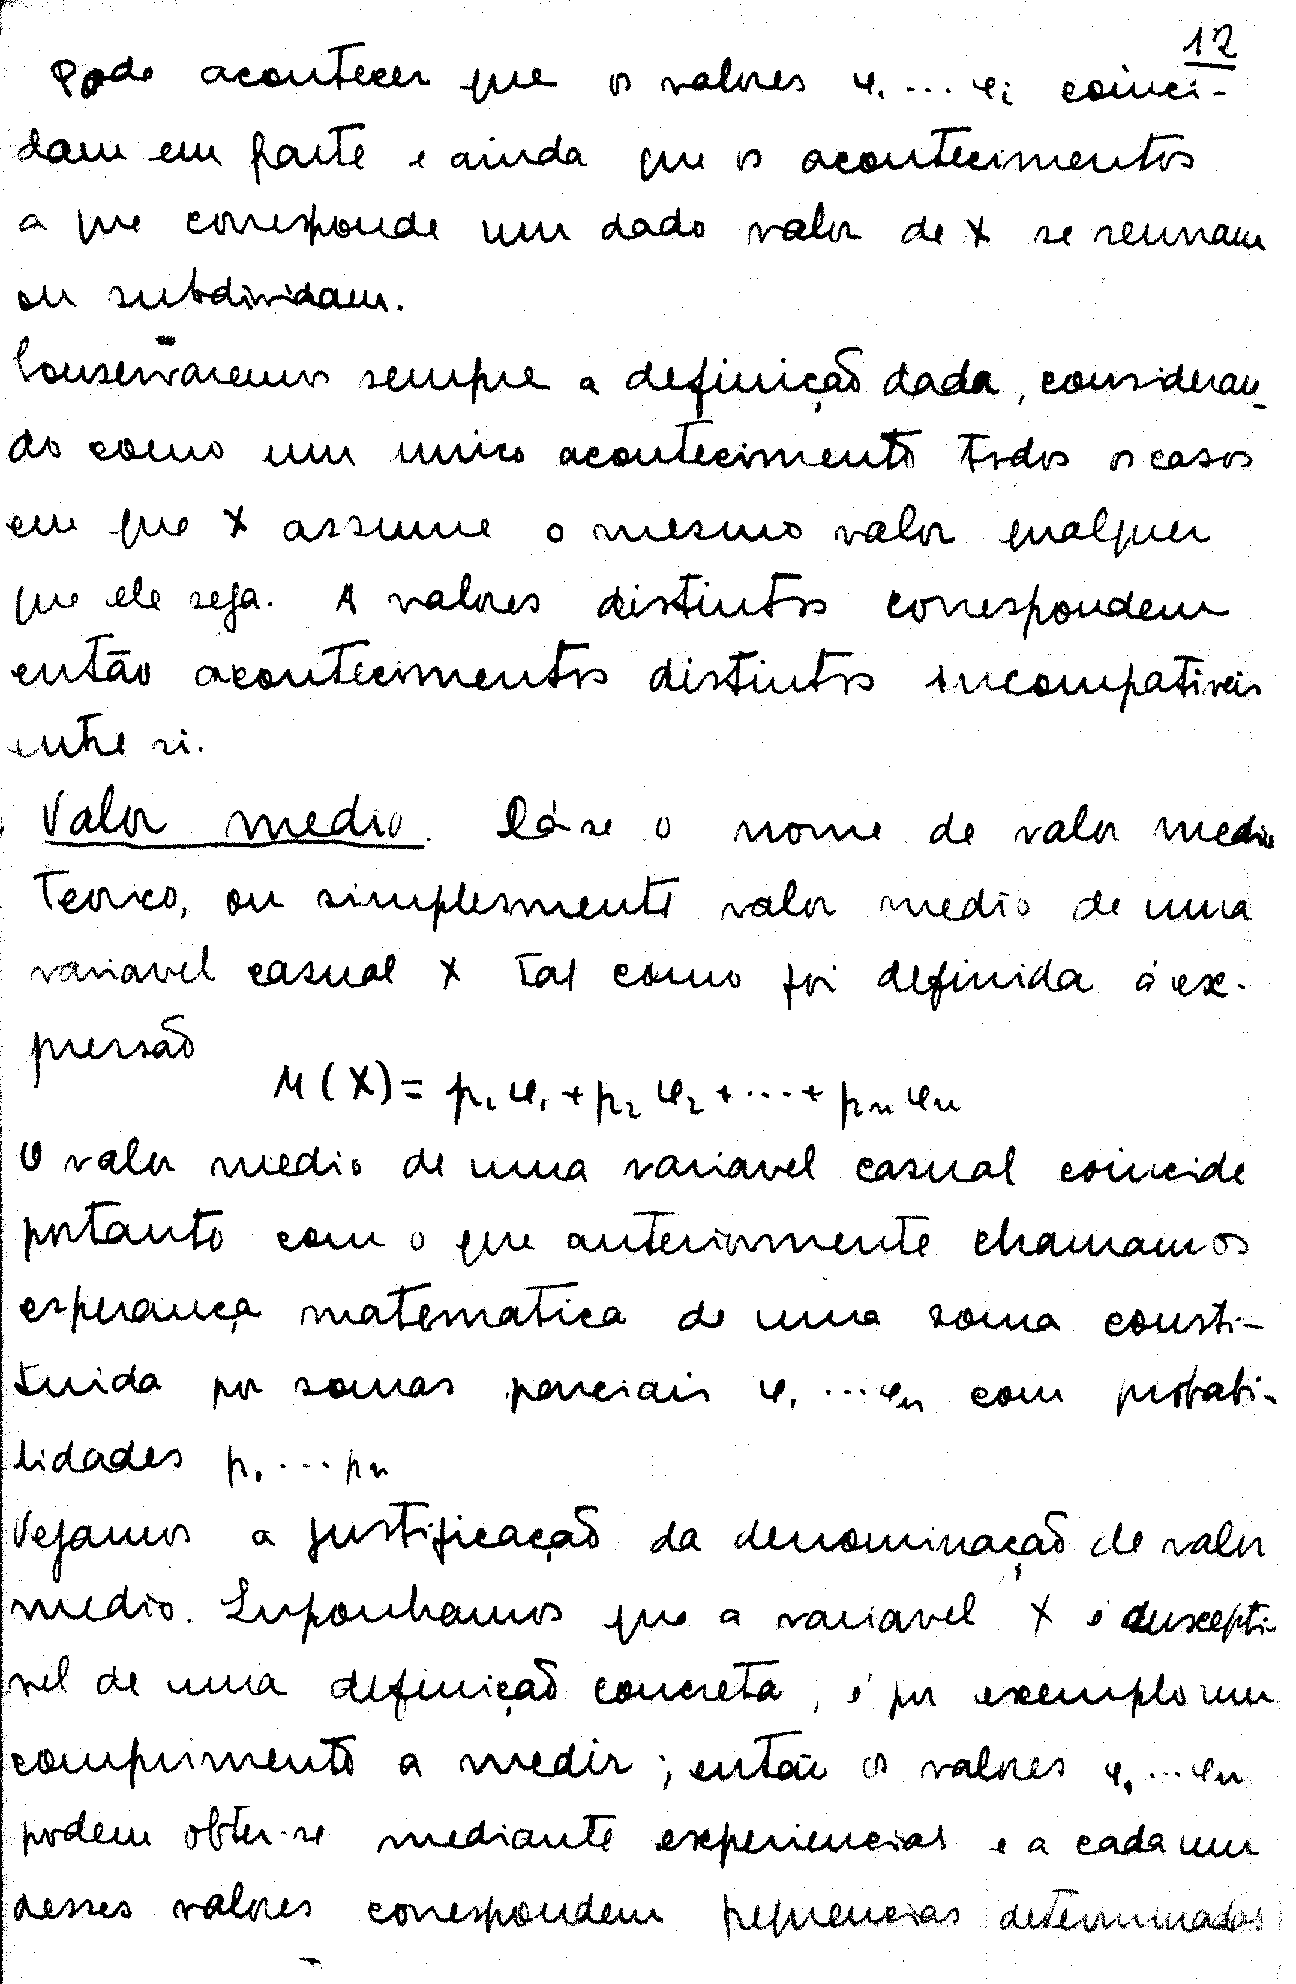 12
Pode acontecer que os valores φ₁ ... φᵢ coinci-
dam em parte e ainda que os acontecimentos
a que corresponde um dado valor de X se reunam
ou subdividam.
Conservaremos sempre a definição dada, consideran-
do como um unico acontecimento todos os casos
em que X assume o mesmo valor qualquer
que ele seja. A valores distintos correspondem
então acontecimentos distintos incompativeis
entre si.
Valor medio. Dá-se o nome de valor medio
teorico, ou simplesmente valor medio de uma
variavel casual X tal como foi definida á ex-
pressão
M(X) = p₁ φ₁ + p₂ φ₂ + ... + pₙ φₙ
O valor medio de uma variavel casual coincide
portanto com o que anteriormente chamamos
esperança matematica de uma soma consti-
tuida por somas parciais φ₁ ... φₙ com probabi-
lidades p₁ ... pₙ
Vejamos a justificação da denominação de valor
medio. Suponhamos que a variavel X é suscepti-
vel de uma definição concreta, é por exemplo um
comprimento a medir; então os valores φ₁ ... φₙ
podem obter-se mediante experiencias e a cada um
desses valores correspondem frequencias determinadas